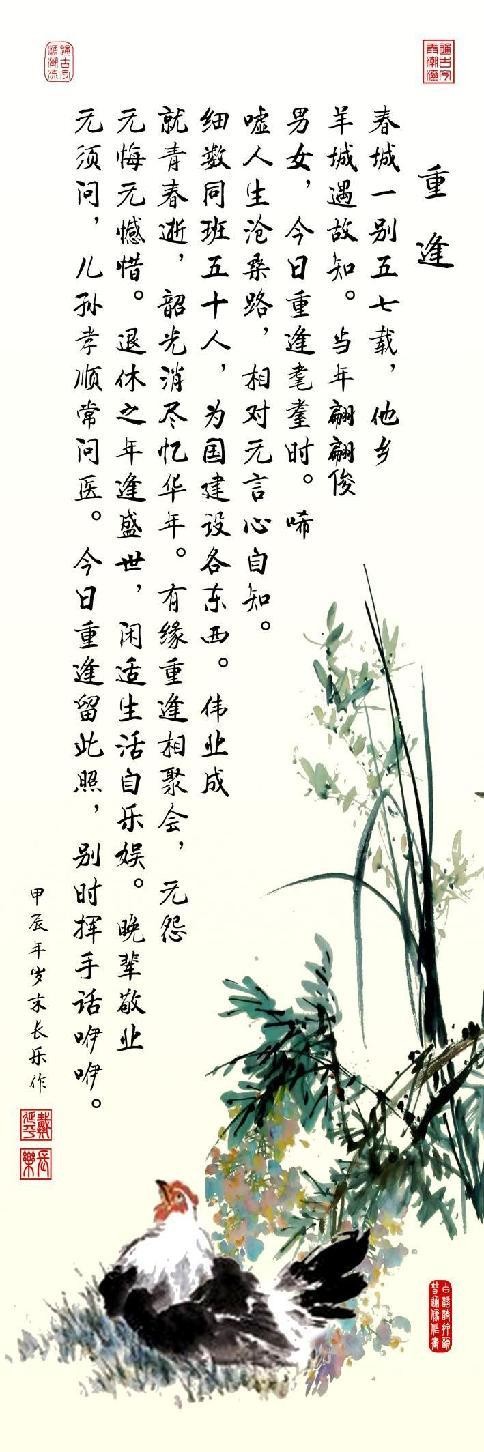 重逢
春城一别五七载，他乡
羊城遇故知。当年翩翩俊
男女，今日重逢耄耋时。唏
嘘人生沧桑路，相对无言心自知。
细数同班五十人，为国建设各东西。伟业成
就青春逝，韶光消尽忆华年。有缘重逢相聚会，无怨
无悔无憾惜。退休之年逢盛世，闲适生活自乐娱。晚辈敬业
无须问，儿孙孝顺常问医。今日重逢留此照，别时挥手话咿咿。
甲辰年岁末长乐作